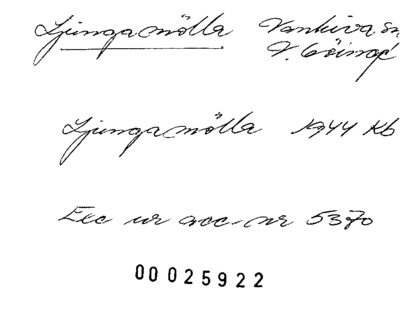 Ljungamölla Vankiva sn
V. Göinge
Ljungamölla 1944 Kb
Exc ur acc-nr 5370
00025922